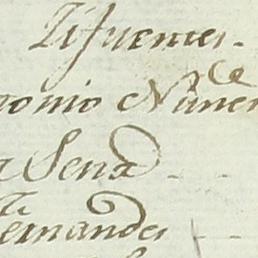 Zifuentes.
tonio Nuñez
a Sena
ernandes